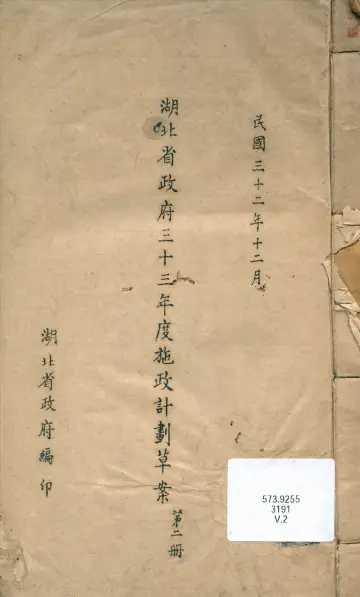 民國三十二年十二月
湖北省政府三十三年度施政計劃草案 第二册
湖北省政府編印
573.9255
3191
V.2